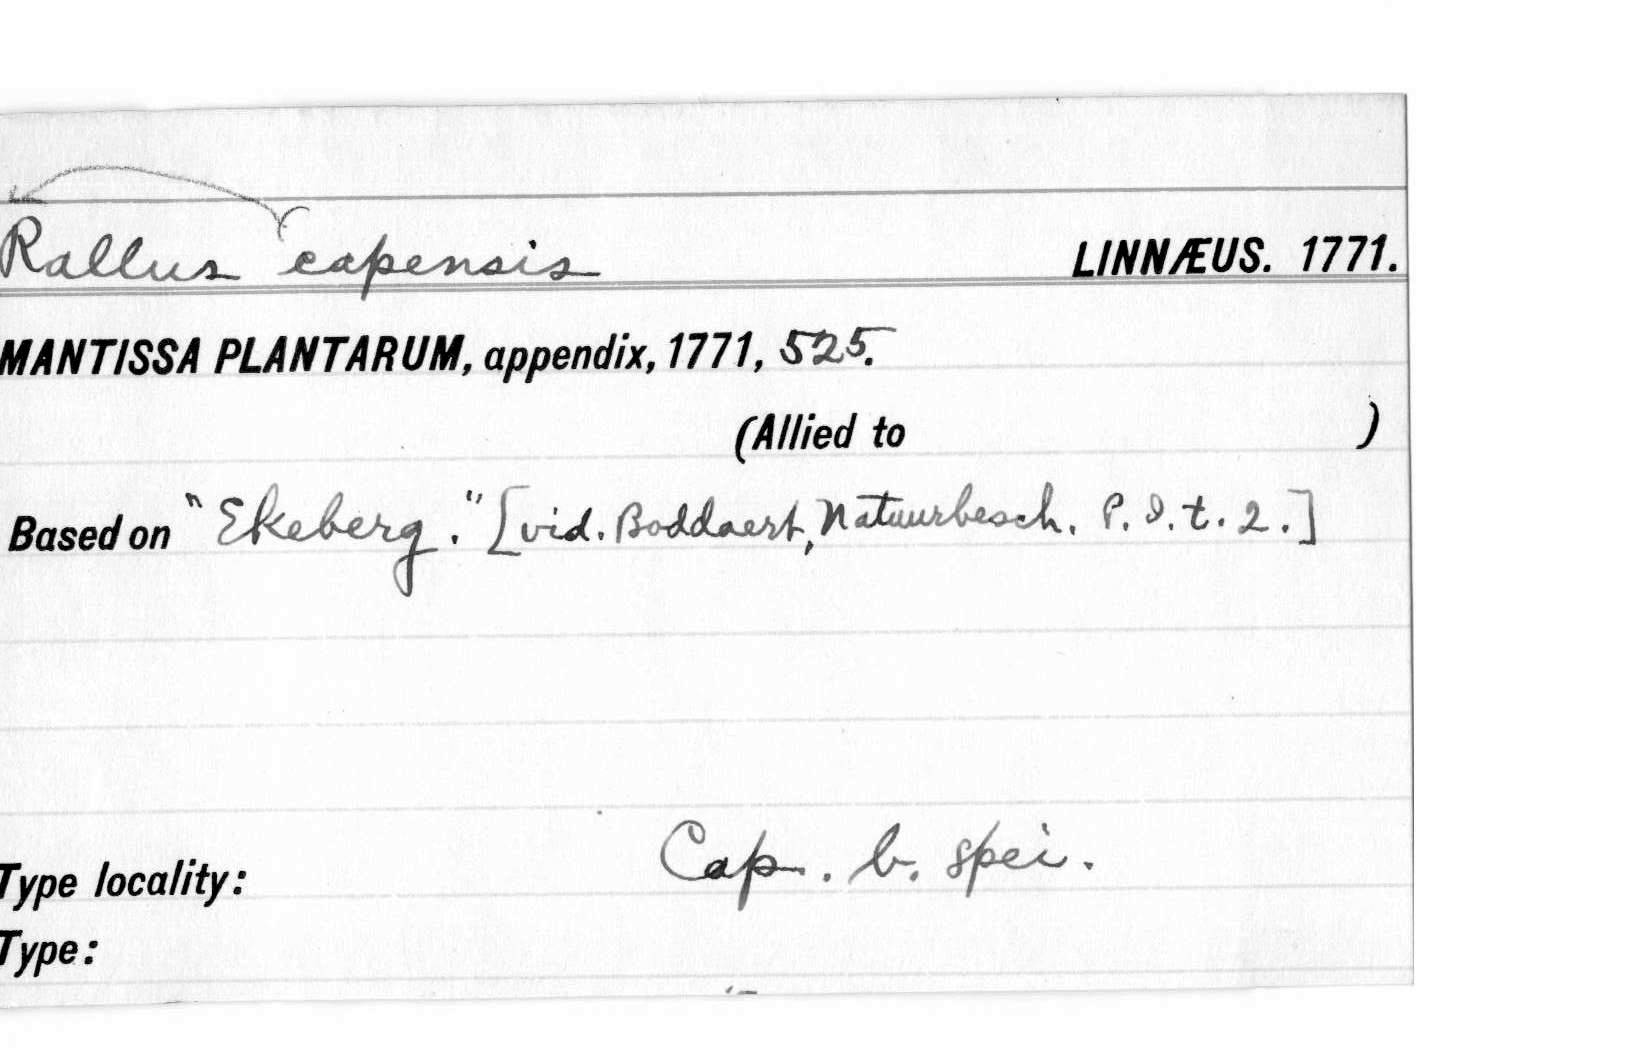 Rallus capensis LINNÆUS. 1771.
MANTISSA PLANTARUM, appendix, 1771, 525.
(Allied to )
Based on "Ekeberg." [vid. Boddaert, Natuurbesch. P. I. t. 2.]
Type locality: Cap. b. spei.
Type: